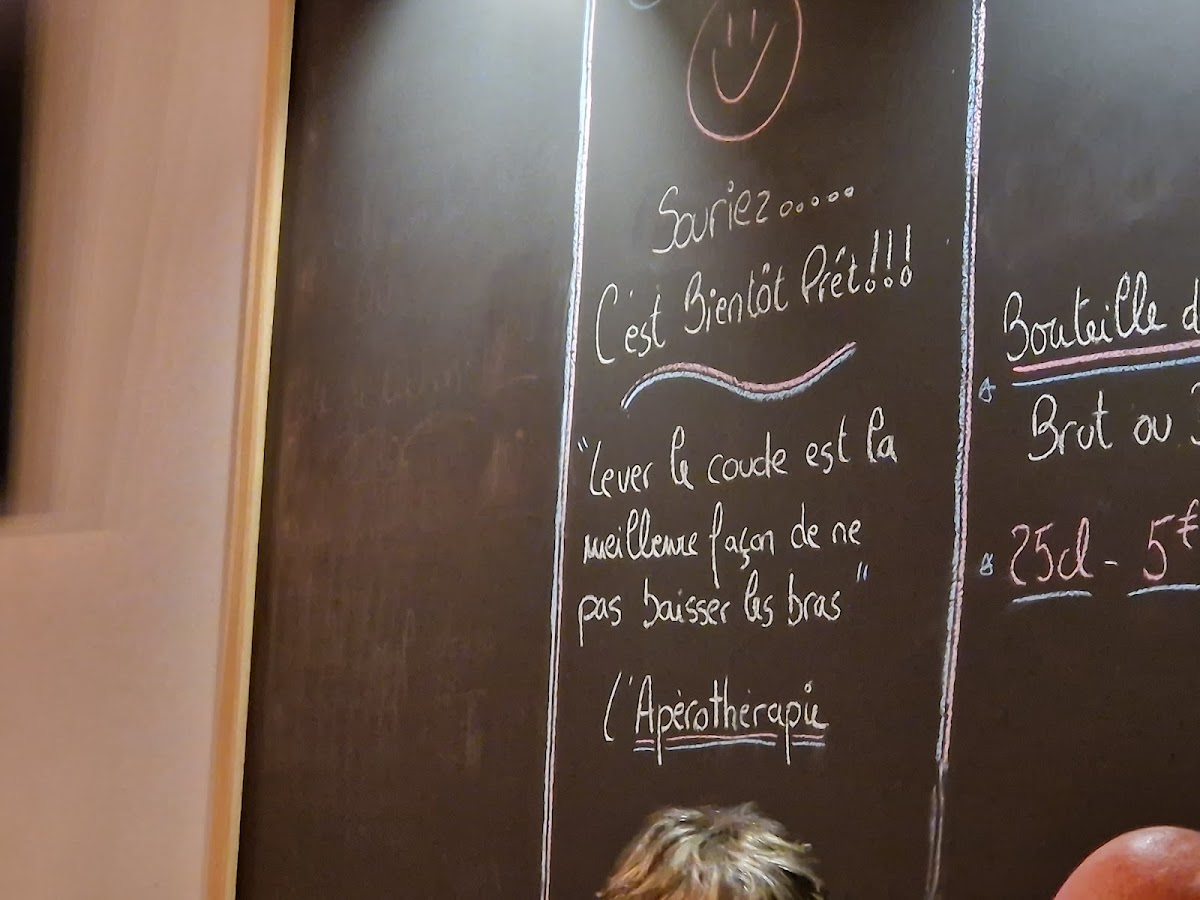 Souriez.....
C'est Bientôt Prêt!!!
"Lever le coude est la
meilleure façon de ne
pas baisser les bras"
L'Apérothérapie
Bouteille d
Brut ou
25cl - 5€